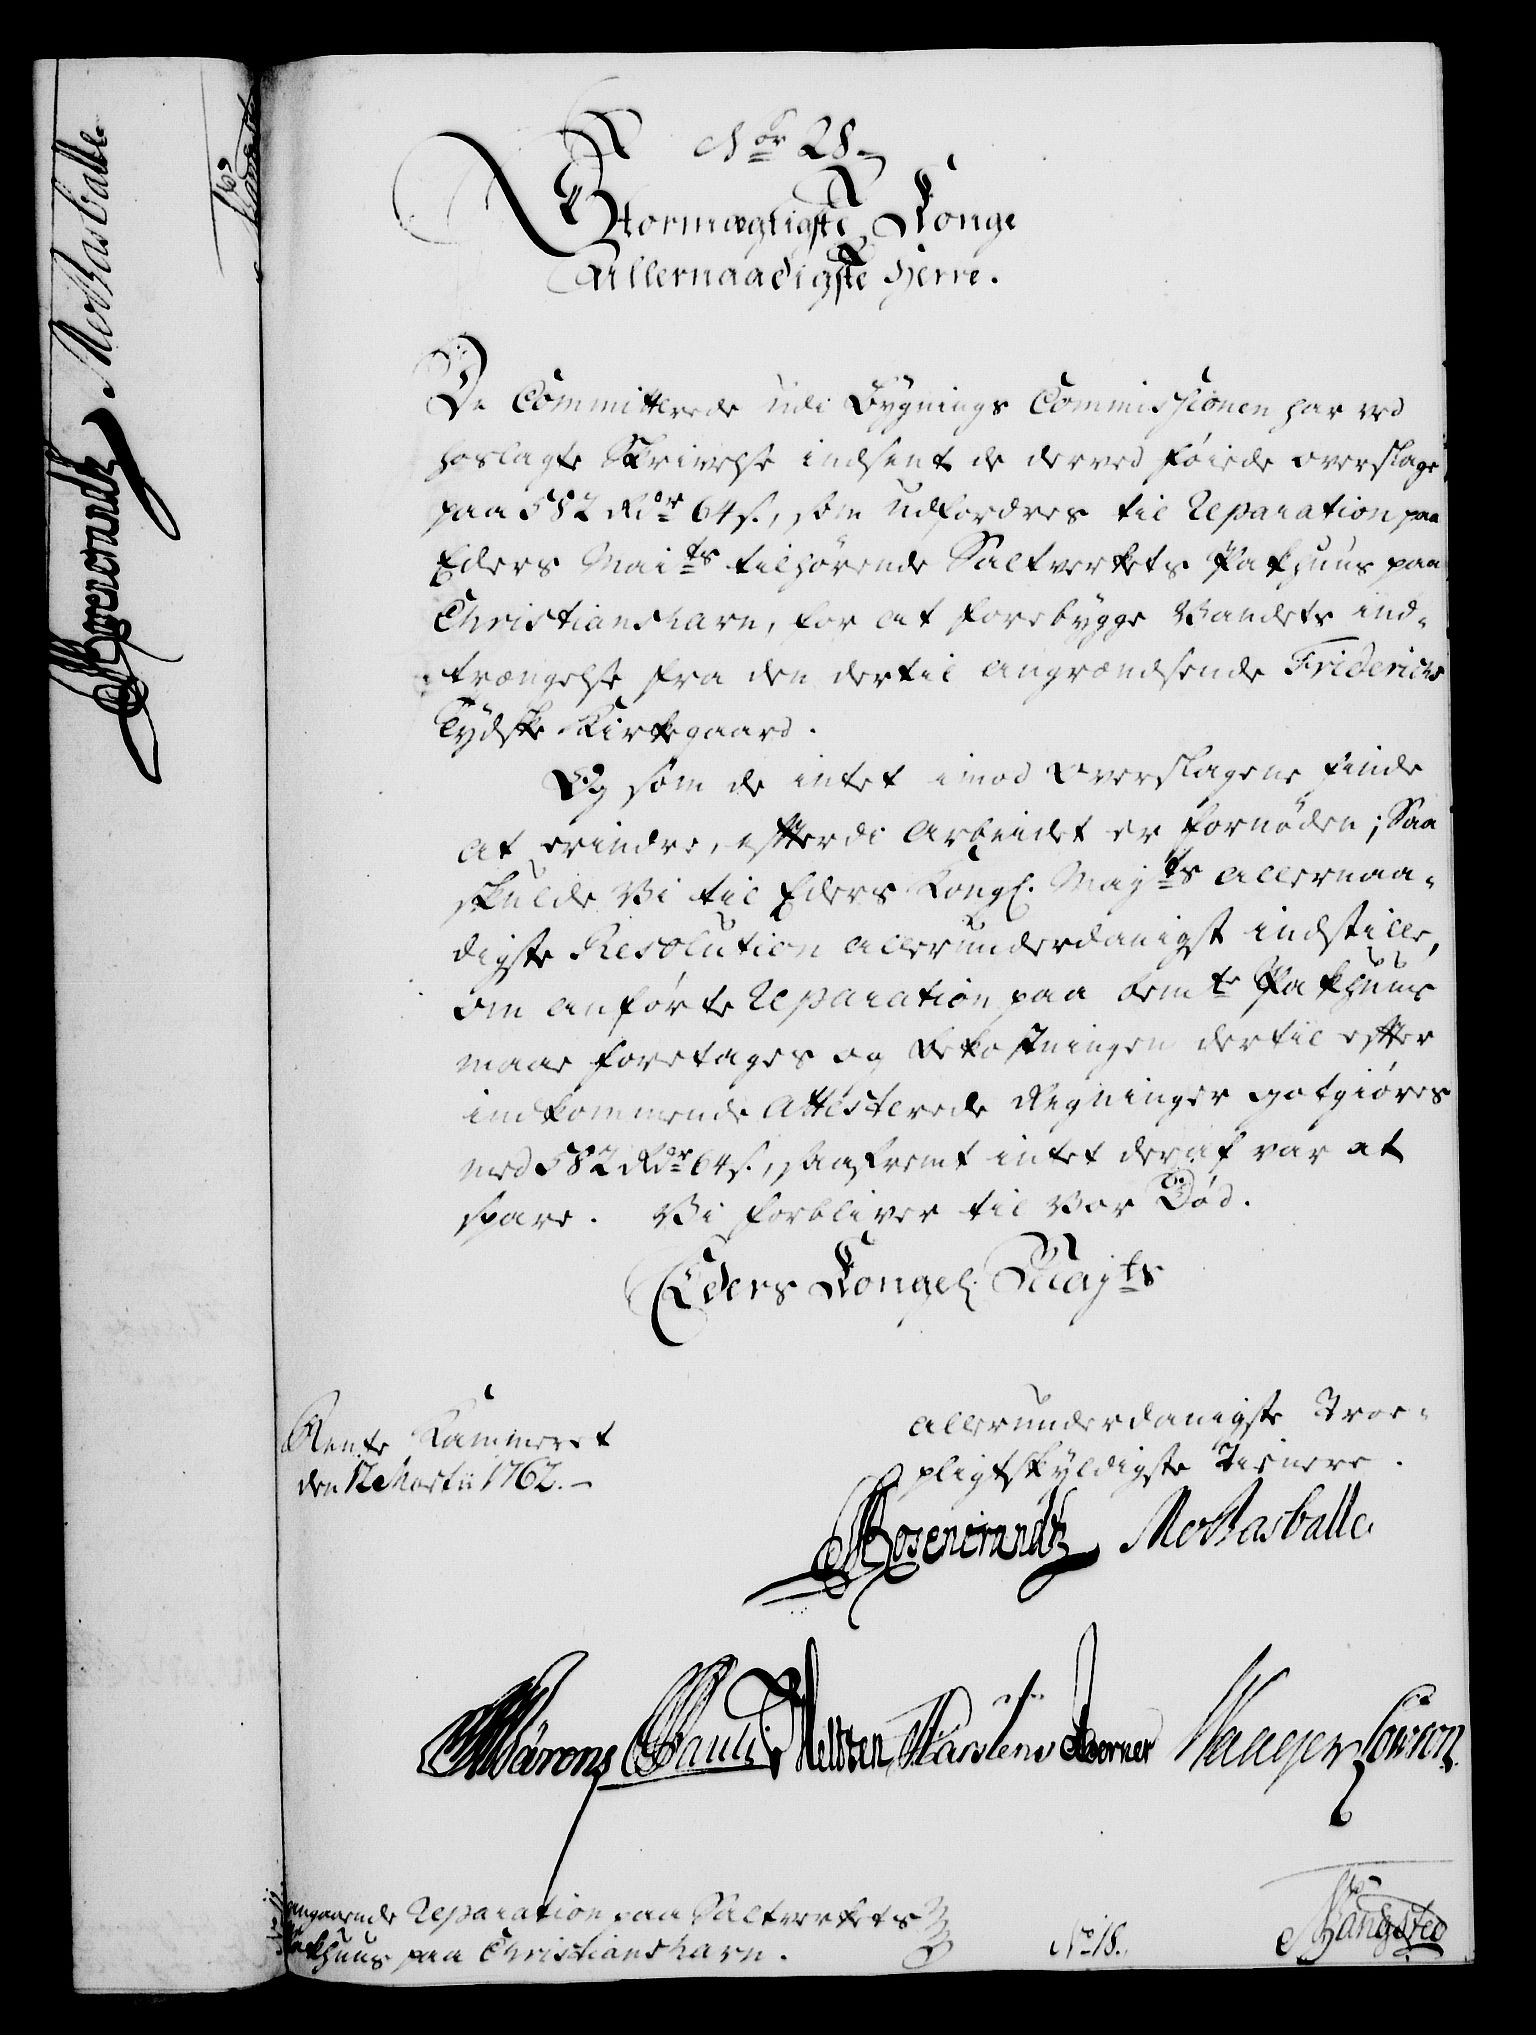 Nor 28
Stormægtigste Konge
Allernaadigste Herre.
De Committerede udi Bygnings Commissionen har ved
hoslagte Skrivelse indsent de derved føiede overslage
paa 582 Rdr 64 s., som udfordres til Reparation paa
Eders Maits tilhørende Saltverkets Pakhuus paa
Christianshavn, for at forebygge Vandets ind-
trængelse fra den dertil angrændsende Friderichs
Tydske Kirkegaard.
Og som de intet imod Overslagene finde
at erindre, efterdi Arbeidet er fornøden; Saa
skulde Vi til Eders Kongl. Mayts allernaa-
digste Resolution allerunderdanigst indstille,
om anførte Reparation paa bemte Pakhuus
maae foretages og Bekostningen dertil efter
indkommende Attesterede Regninger godtgiøres
med 582 Rdr 64 s., saafremt intet deraf var at
spare. Vi forbliver til Vor Død.
Eders Kongel. Mayts
Rente Kammeret
den 12 Martii 1762.
allerunderdanigste Troe-
pligtskyldigste Tienere.
Rosencrandtz
Bärens Pauli Neltzen Karstens Berner
angaaende Reparation paa Saltverkets
Pakhuus paa Christianshavn.
No 18.
Rosencrandtz